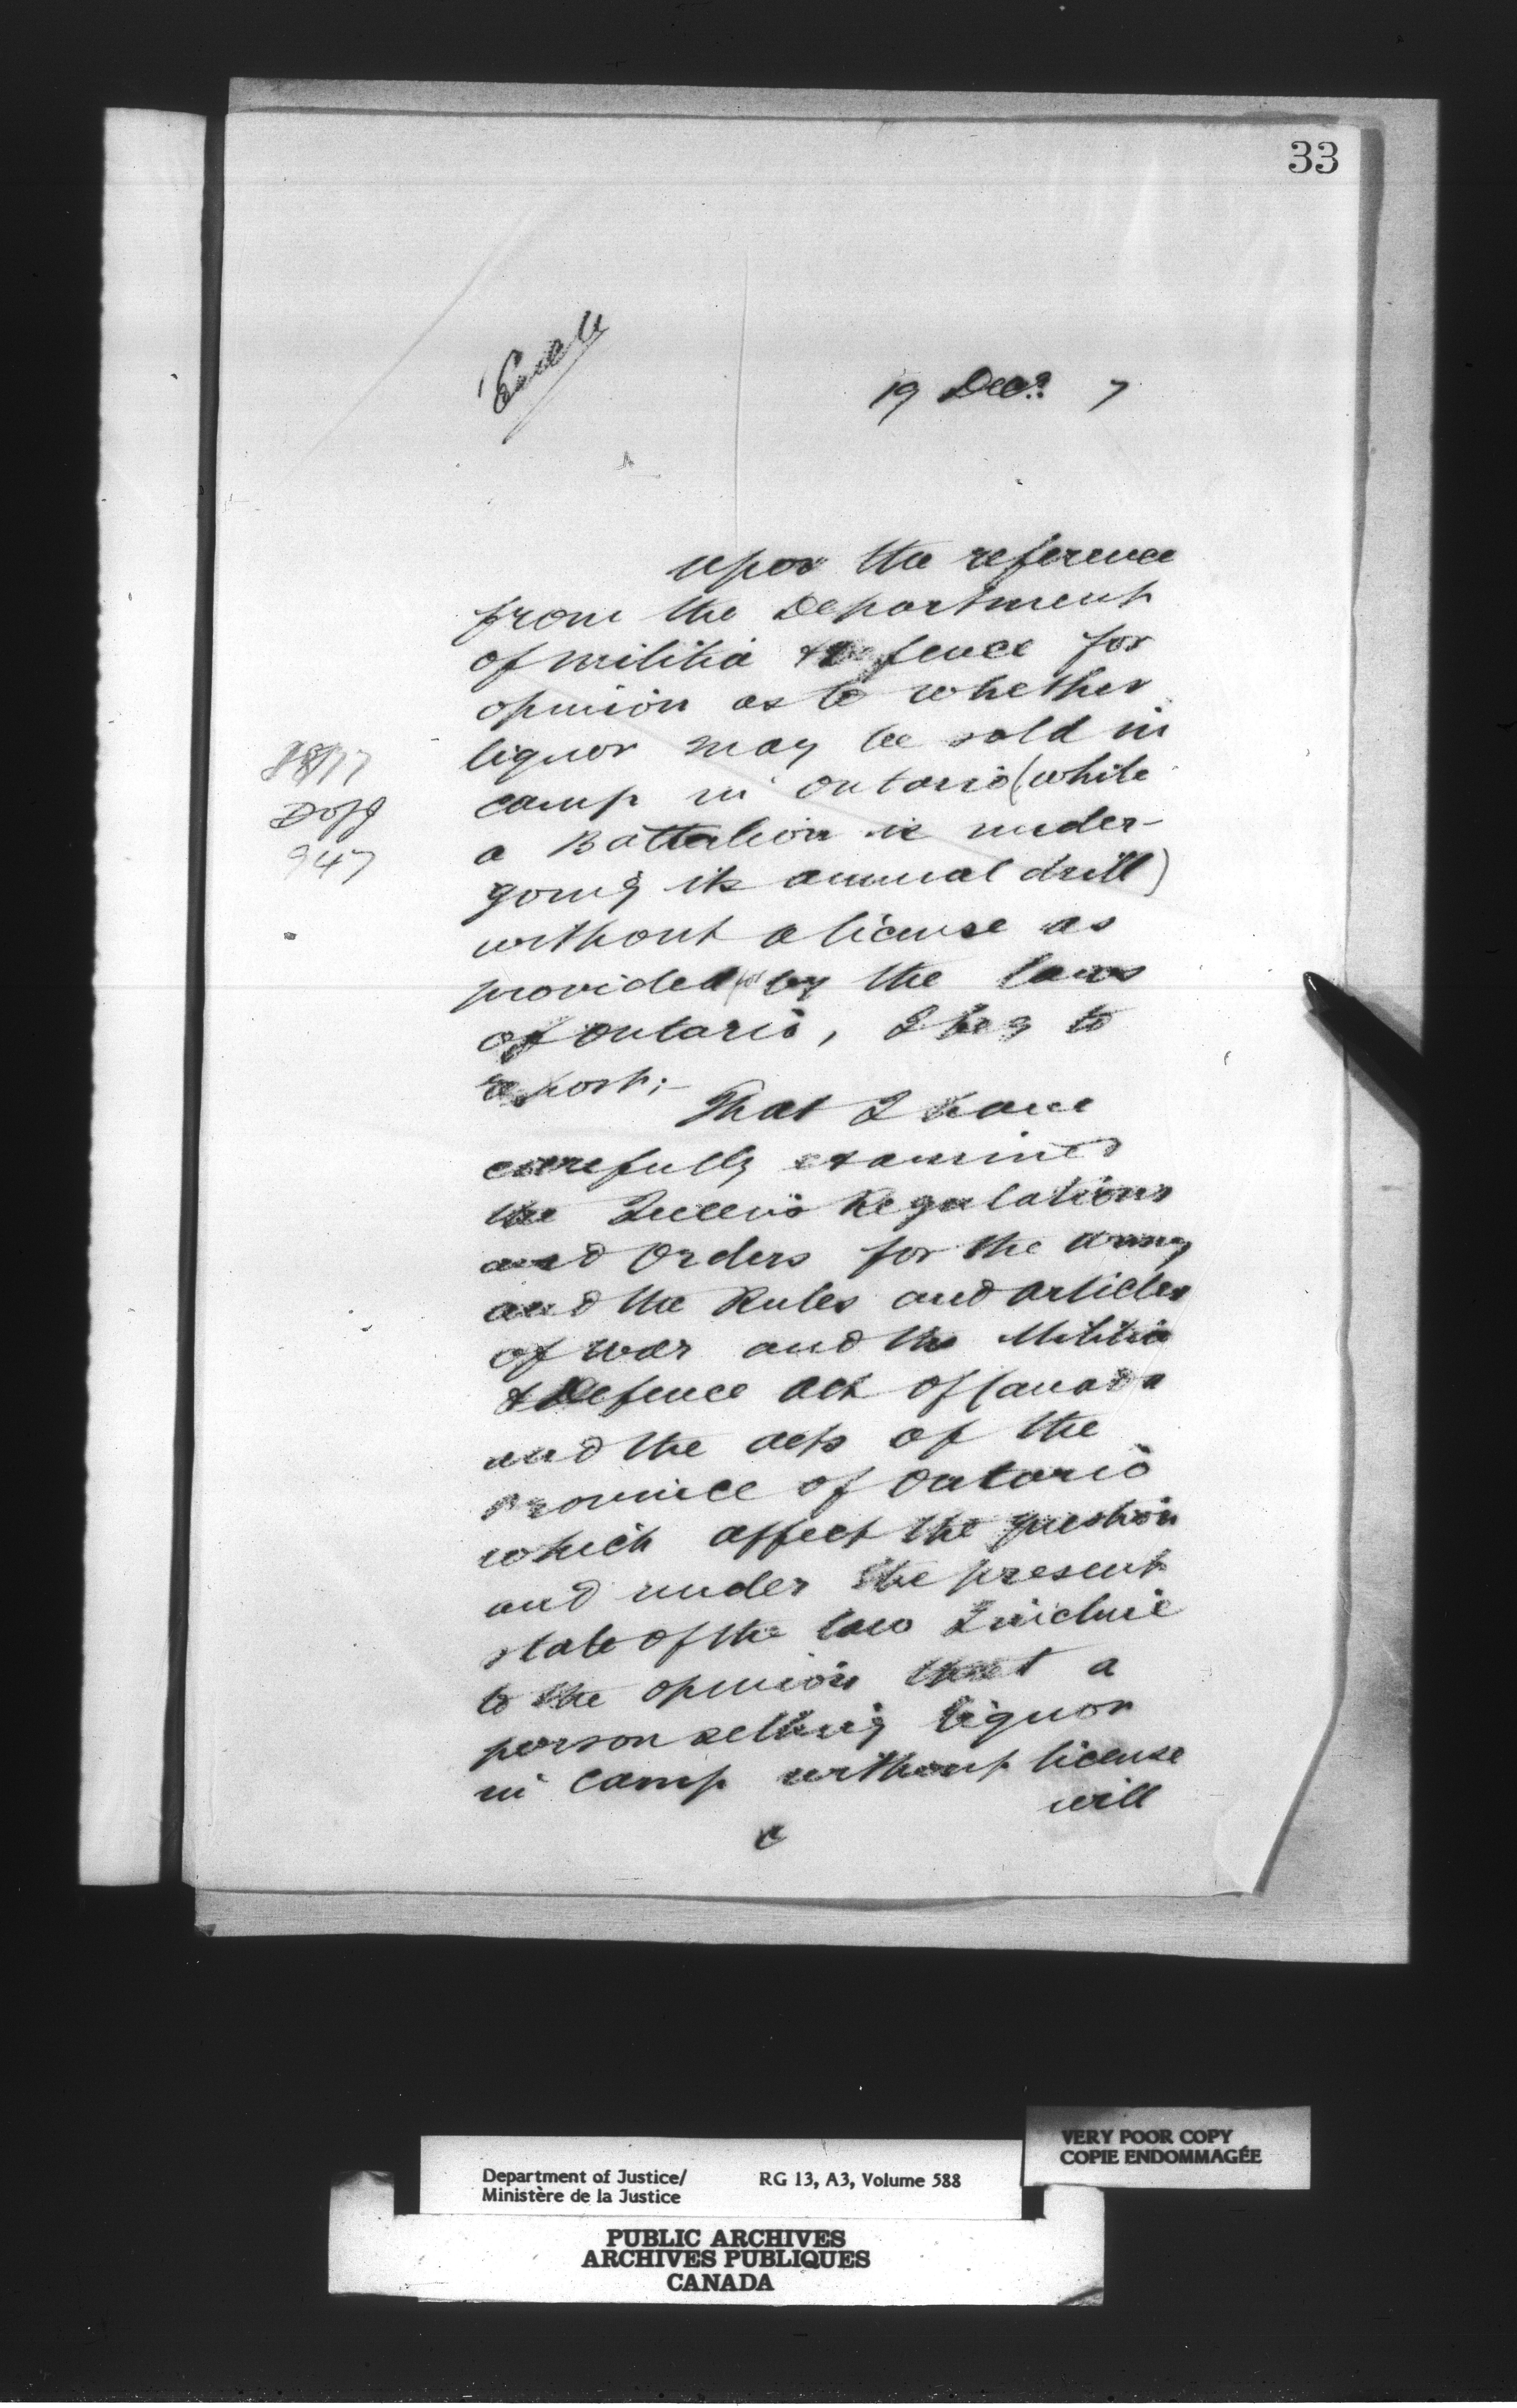 33
19 Dec. 7
upon the reference
from the Department
of militia & Defence for
opinion as to whether
liquor may be sold in
camp in Ontario (while
a Battalion is under-
going its annual drill)
without a license as
provided for by the laws
of Ontario, I beg to
report;-
That I have
carefully examined
the Queen's Regulations
and Orders for the army
and the Rules and articles
of war and the Militia
& Defence act of Canada
and the acts of the
Province of Ontario
which affect the question
and under the present
state of the law I incline
to the opinion that a
person selling liquor
in camp without license
will
1877
DofJ
947
VERY POOR COPY
COPIE ENDOMMAGÉE
Department of Justice/
Ministère de la Justice
RG 13, A3, Volume 588
PUBLIC ARCHIVES
ARCHIVES PUBLIQUES
CANADA